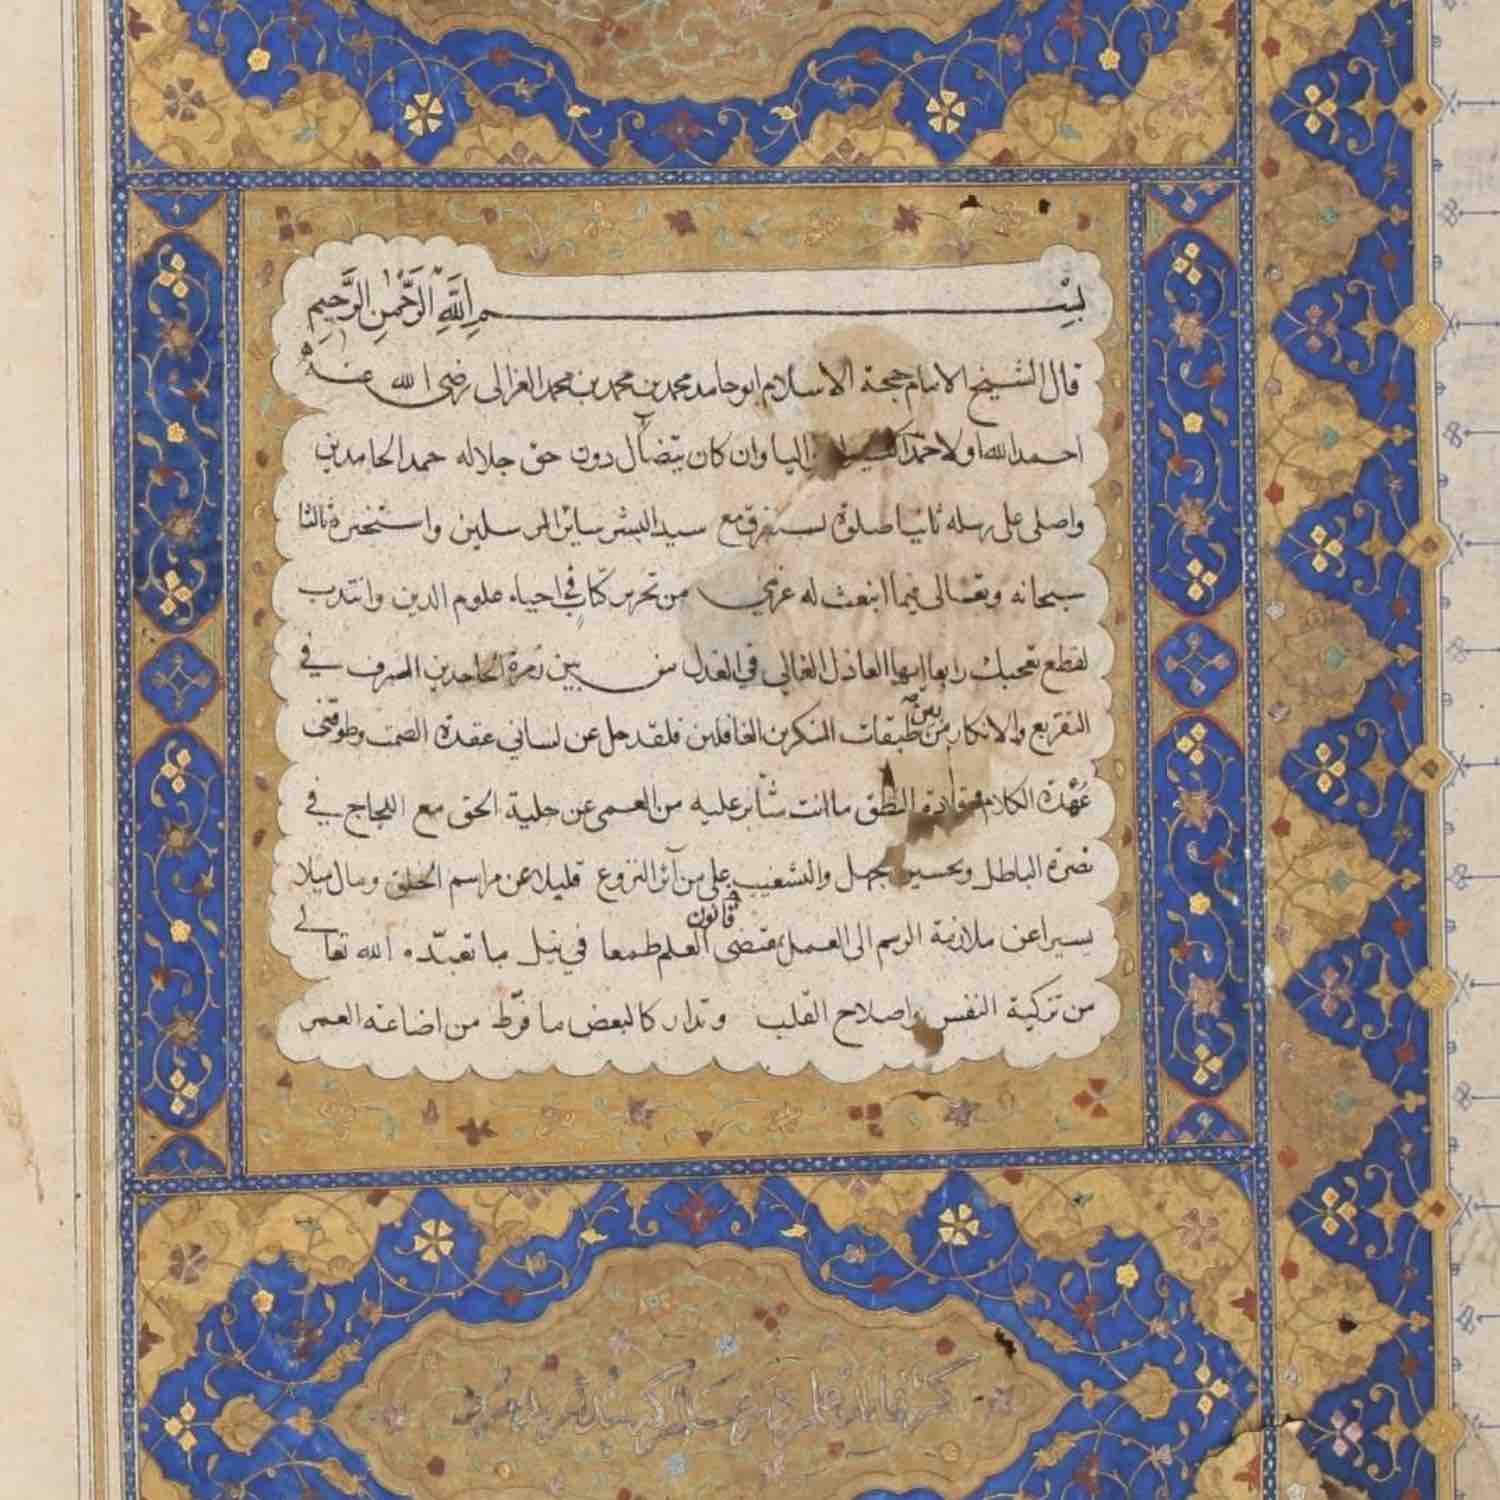 بِسْمِ اللَّهِ الرَّحْمٰنِ الرَّحِيمِ
قال الشيخ الامام حجة الاسلام ابو حامد محمد بن محمد بن محمد الغزالى رضى الله عنه
احمد الله اولا حمدا متواليا وان كان يتضأل دون حق جلاله حمد الحامدين
واصلى على رسله ثانيا صلوة تستغرق مع سيد البشر سائر المرسلين واستخيره ثالثا
سبحانه وتعالى فيما انبعث له عزمي من تحرير كتاب في احياء علوم الدين وانتدب
لقطع تعجبك رابعا ايها العاذل الغالي في العذل من بين زمرة الجاحدين المسرف في
التقريع والانكار من بين طبقات المنكرين الغافلين فلقد حل عن لساني عقدة الصمت وطوقنى
عُهْدة الكلام وقلادة النطق ما انت مثابر عليه من العمى عن جلية الحق مع اللجاج في
نصرة الباطل وتحسين الجهل والتشغيب على من آثر النزوع قليلا عن مراسم الخلق ومال ميلا
يسيرا عن ملازمة الرسم الى العمل بمقتضى قانون العلم طمعا في نيل ما تعبّده الله تعالى
من تزكية النفس واصلاح القلب وتداركا لبعض ما فرّط من اضاعة العمر